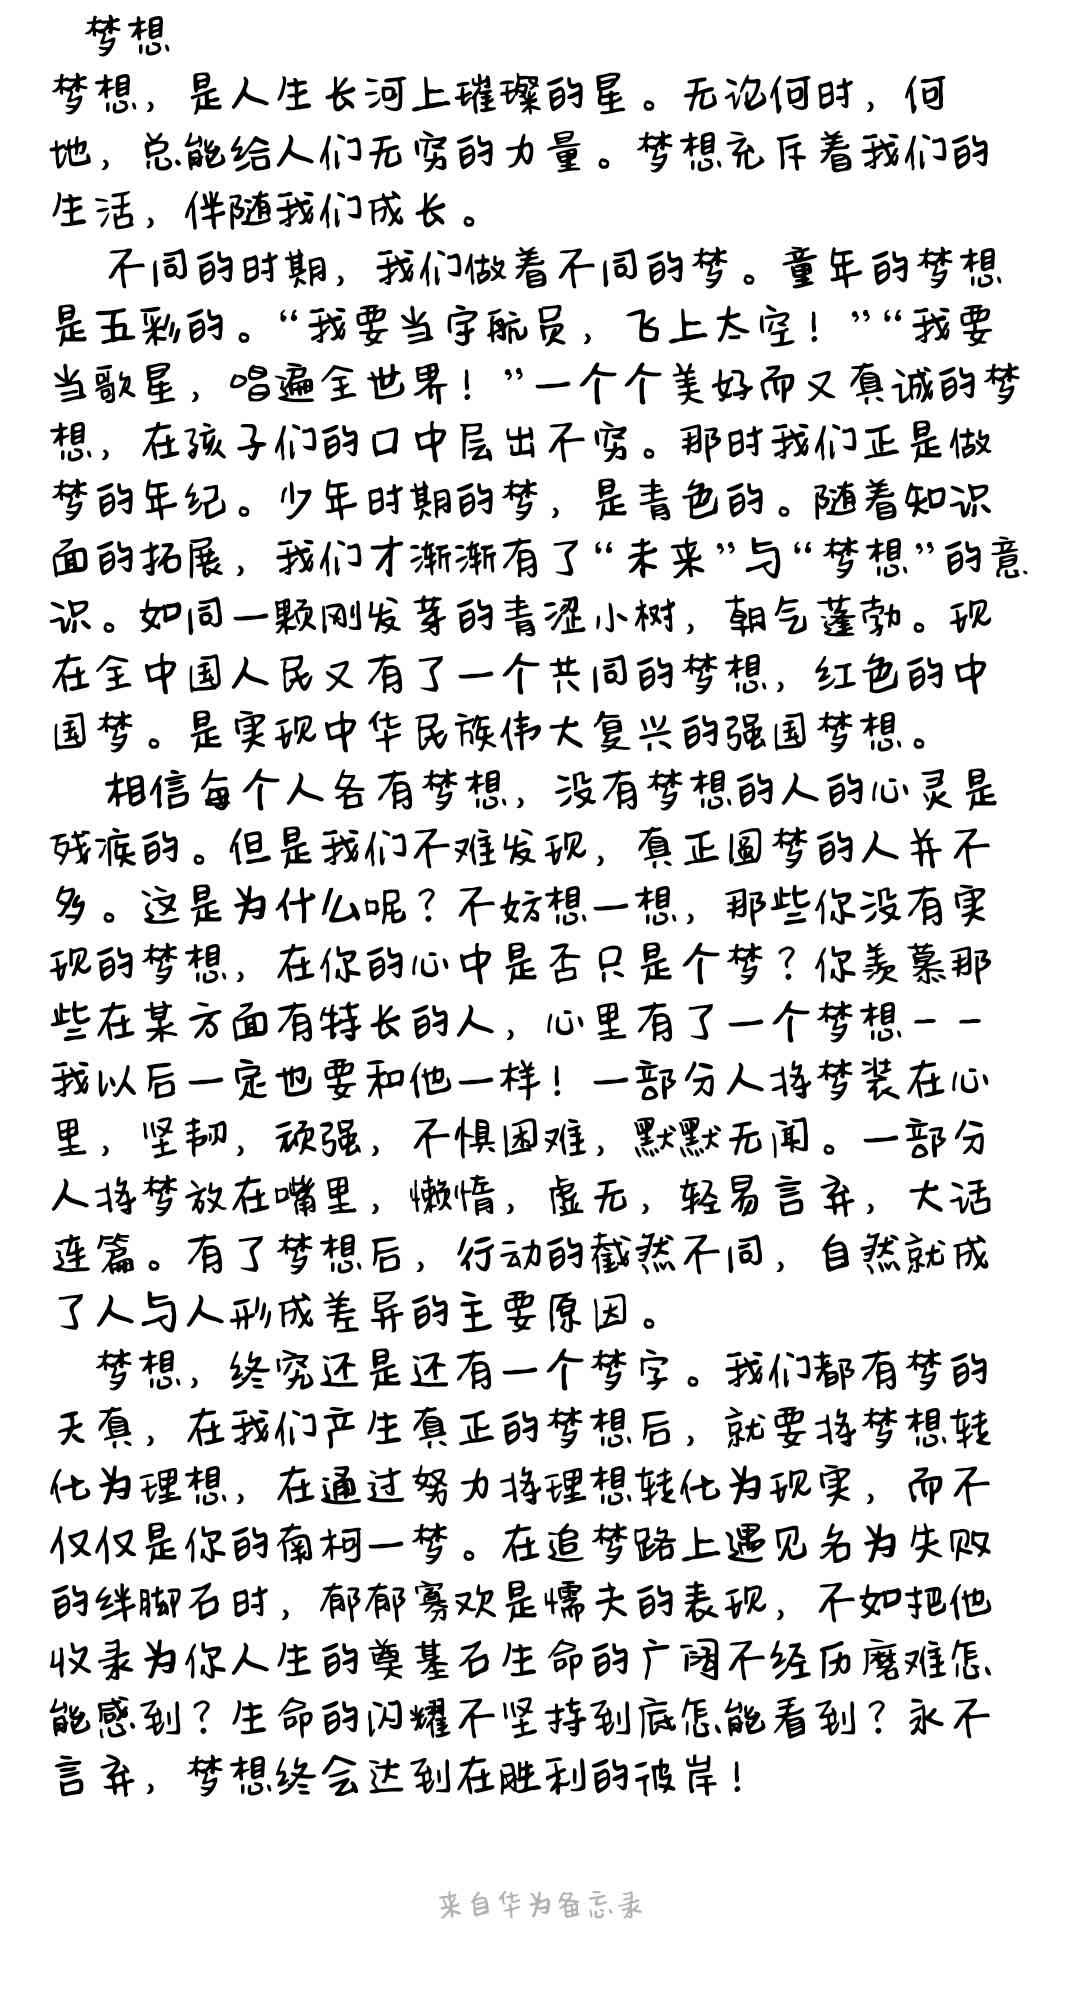 梦想
梦想，是人生长河上璀璨的星。无论何时，何
地，总能给人们无穷的力量。梦想充斥着我们的
生活，伴随我们成长。
不同的时期，我们做着不同的梦。童年的梦想
是五彩的。“我要当宇航员，飞上太空！”“我要
当歌星，唱遍全世界！”一个个美好而又真诚的梦
想，在孩子们的口中层出不穷。那时我们正是做
梦的年纪。少年时期的梦，是青色的。随着知识
面的拓展，我们才渐渐有了“未来”与“梦想”的意
识。如同一颗刚发芽的青涩小树，朝气蓬勃。现
在全中国人民又有了一个共同的梦想，红色的中
国梦。是实现中华民族伟大复兴的强国梦想。
相信每个人各有梦想，没有梦想的人的心灵是
残疾的。但是我们不难发现，真正圆梦的人并不
多。这是为什么呢？不妨想一想，那些你没有实
现的梦想，在你的心中是否只是个梦？你羡慕那
些在某方面有特长的人，心里有了一个梦想--
我以后一定也要和他一样！一部分人将梦装在心
里，坚韧，顽强，不惧困难，默默无闻。一部分
人将梦放在嘴里，懒惰，虚无，轻易言弃，大话
连篇。有了梦想后，行动的截然不同，自然就成
了人与人形成差异的主要原因。
梦想，终究还是还有一个梦字。我们都有梦的
天真，在我们产生真正的梦想后，就要将梦想转
化为理想，在通过努力将理想转化为现实，而不
仅仅是你的南柯一梦。在追梦路上遇见名为失败
的绊脚石时，郁郁寡欢是懦夫的表现，不如把他
收录为你人生的奠基石生命的广阔不经历磨难怎
能感到？生命的闪耀不坚持到底怎能看到？永不
言弃，梦想终会达到在胜利的彼岸！
来自华为备忘录